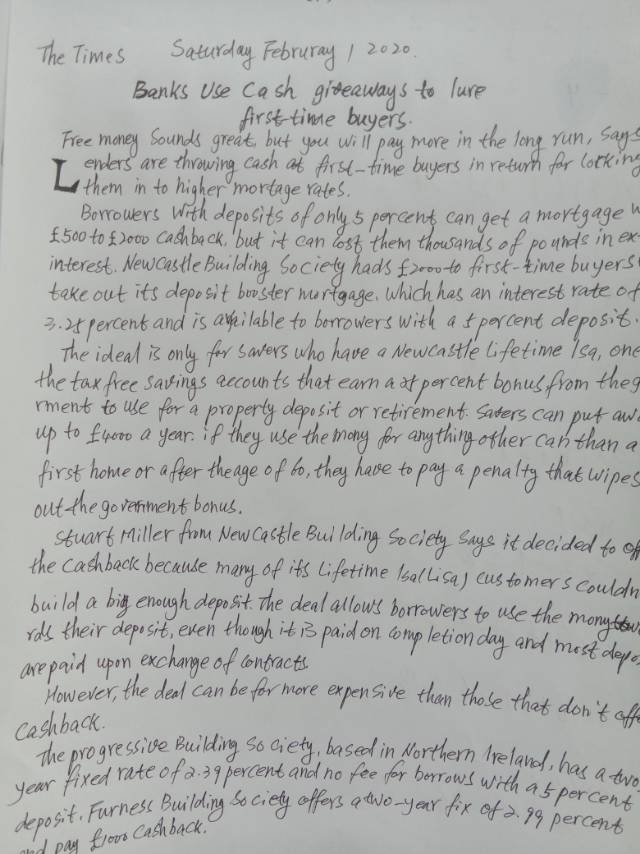 The Times Saturday Februray 1 2020.
Banks Use Cash giveaways to lure
first-time buyers.
Free money Sounds great, but you will pay more in the long run, says
Lenders are throwing cash at first-time buyers in return for locking
them in to higher mortage rates.
Borrowers With deposits of only 5 percent can get a mortgage w
£500 to £2000 cashback, but it can cost them thousands of pounds in ex-
interest. Newcastle Building Society hads £2000 to first-time buyers
take out its deposit booster mortgage, which has an interest rate of
3.25 percent and is available to borrowers with a 5 percent deposit.
The ideal is only for savers who have a Newcastle Lifetime Isa, one
the tax free savings accounts that earn a 25 percent bonus from the g
rment to use for a property deposit or retirement. Savers can put aw
up to £4000 a year. if they use the mony for anything other can than a
first home or after the age of 60, they have to pay a penalty that wipes
out the government bonus.
Stuart Miller from NewCastle Building Society says it decided to off
the cashback because many of its Lifetime Isa(Lisa) customers couldn
build a big enough deposit. The deal allows borrowers to use the mony tow
rds their deposit, even though it is paid on completion day and most depo
are paid upon exchange of contracts
However, the deal can be for more expensive than those that don't offe
cashback.
The progressive Building Society, based in Northern Ireland, has a two
year fixed rate of 2.39 percent and no fee for borrows with a 5 percent
deposit. Furness Building Society offers a two-year fix of 2.99 percent
and pay £1000 cashback.